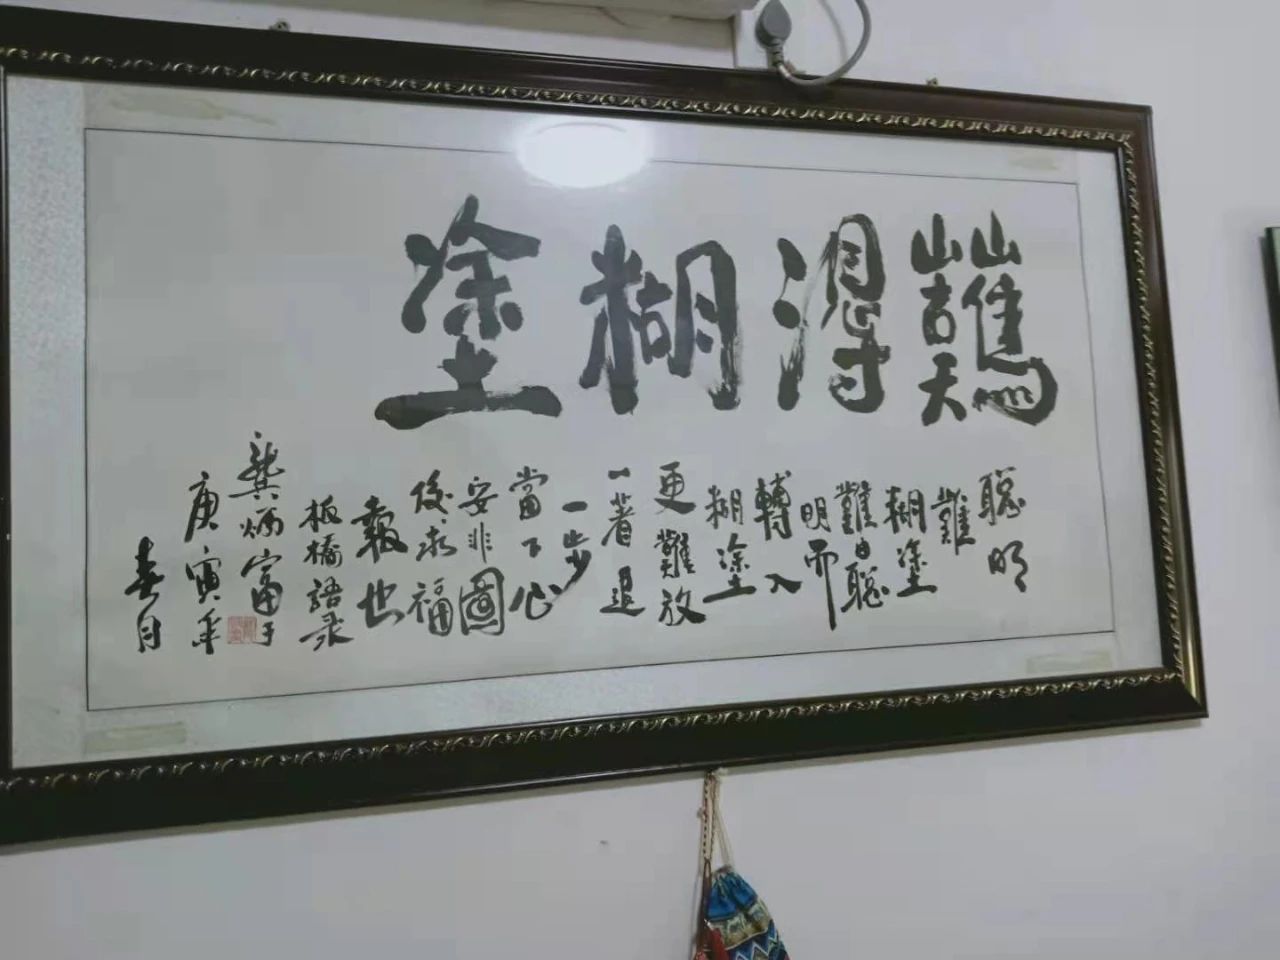 難得糊塗
聰明
難
糊塗
難由聰
明而
轉入
糊塗
更難放
一著退
一步
當下心
安非圖
後求福
報也
板橋語录
龔炳富于
庚寅年
春月